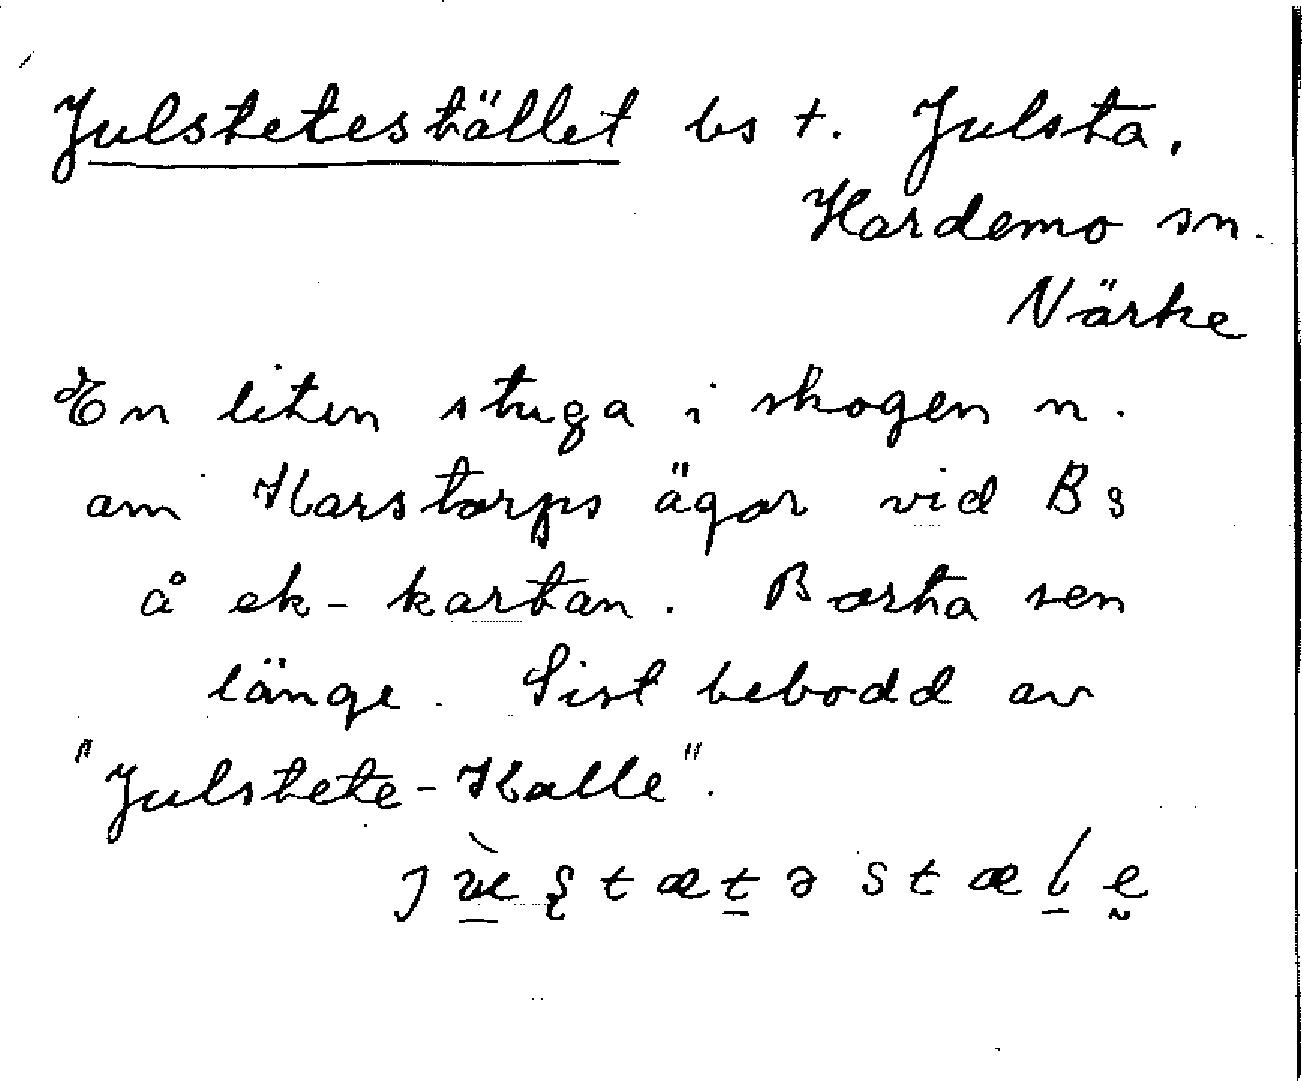 Julstetestället bs t. Julsta,
Hardemo sn.
Närke
En liten stuga i skogen n.
om Harstorps ägor vid B3
å ek-kartan. Borta sen
länge. Sist bebodd av
"Julstete-Kalle".